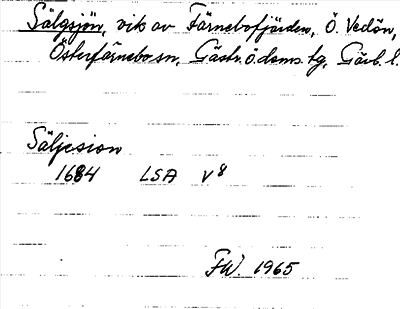 Sälgsjön, vik av Färnebofjärden, Ö. Vedön,
Österfärnebo sn, Gästr. ö. doms. tg, Gävb. l.
Säljesion
1684 LSA V 8
FW. 1965